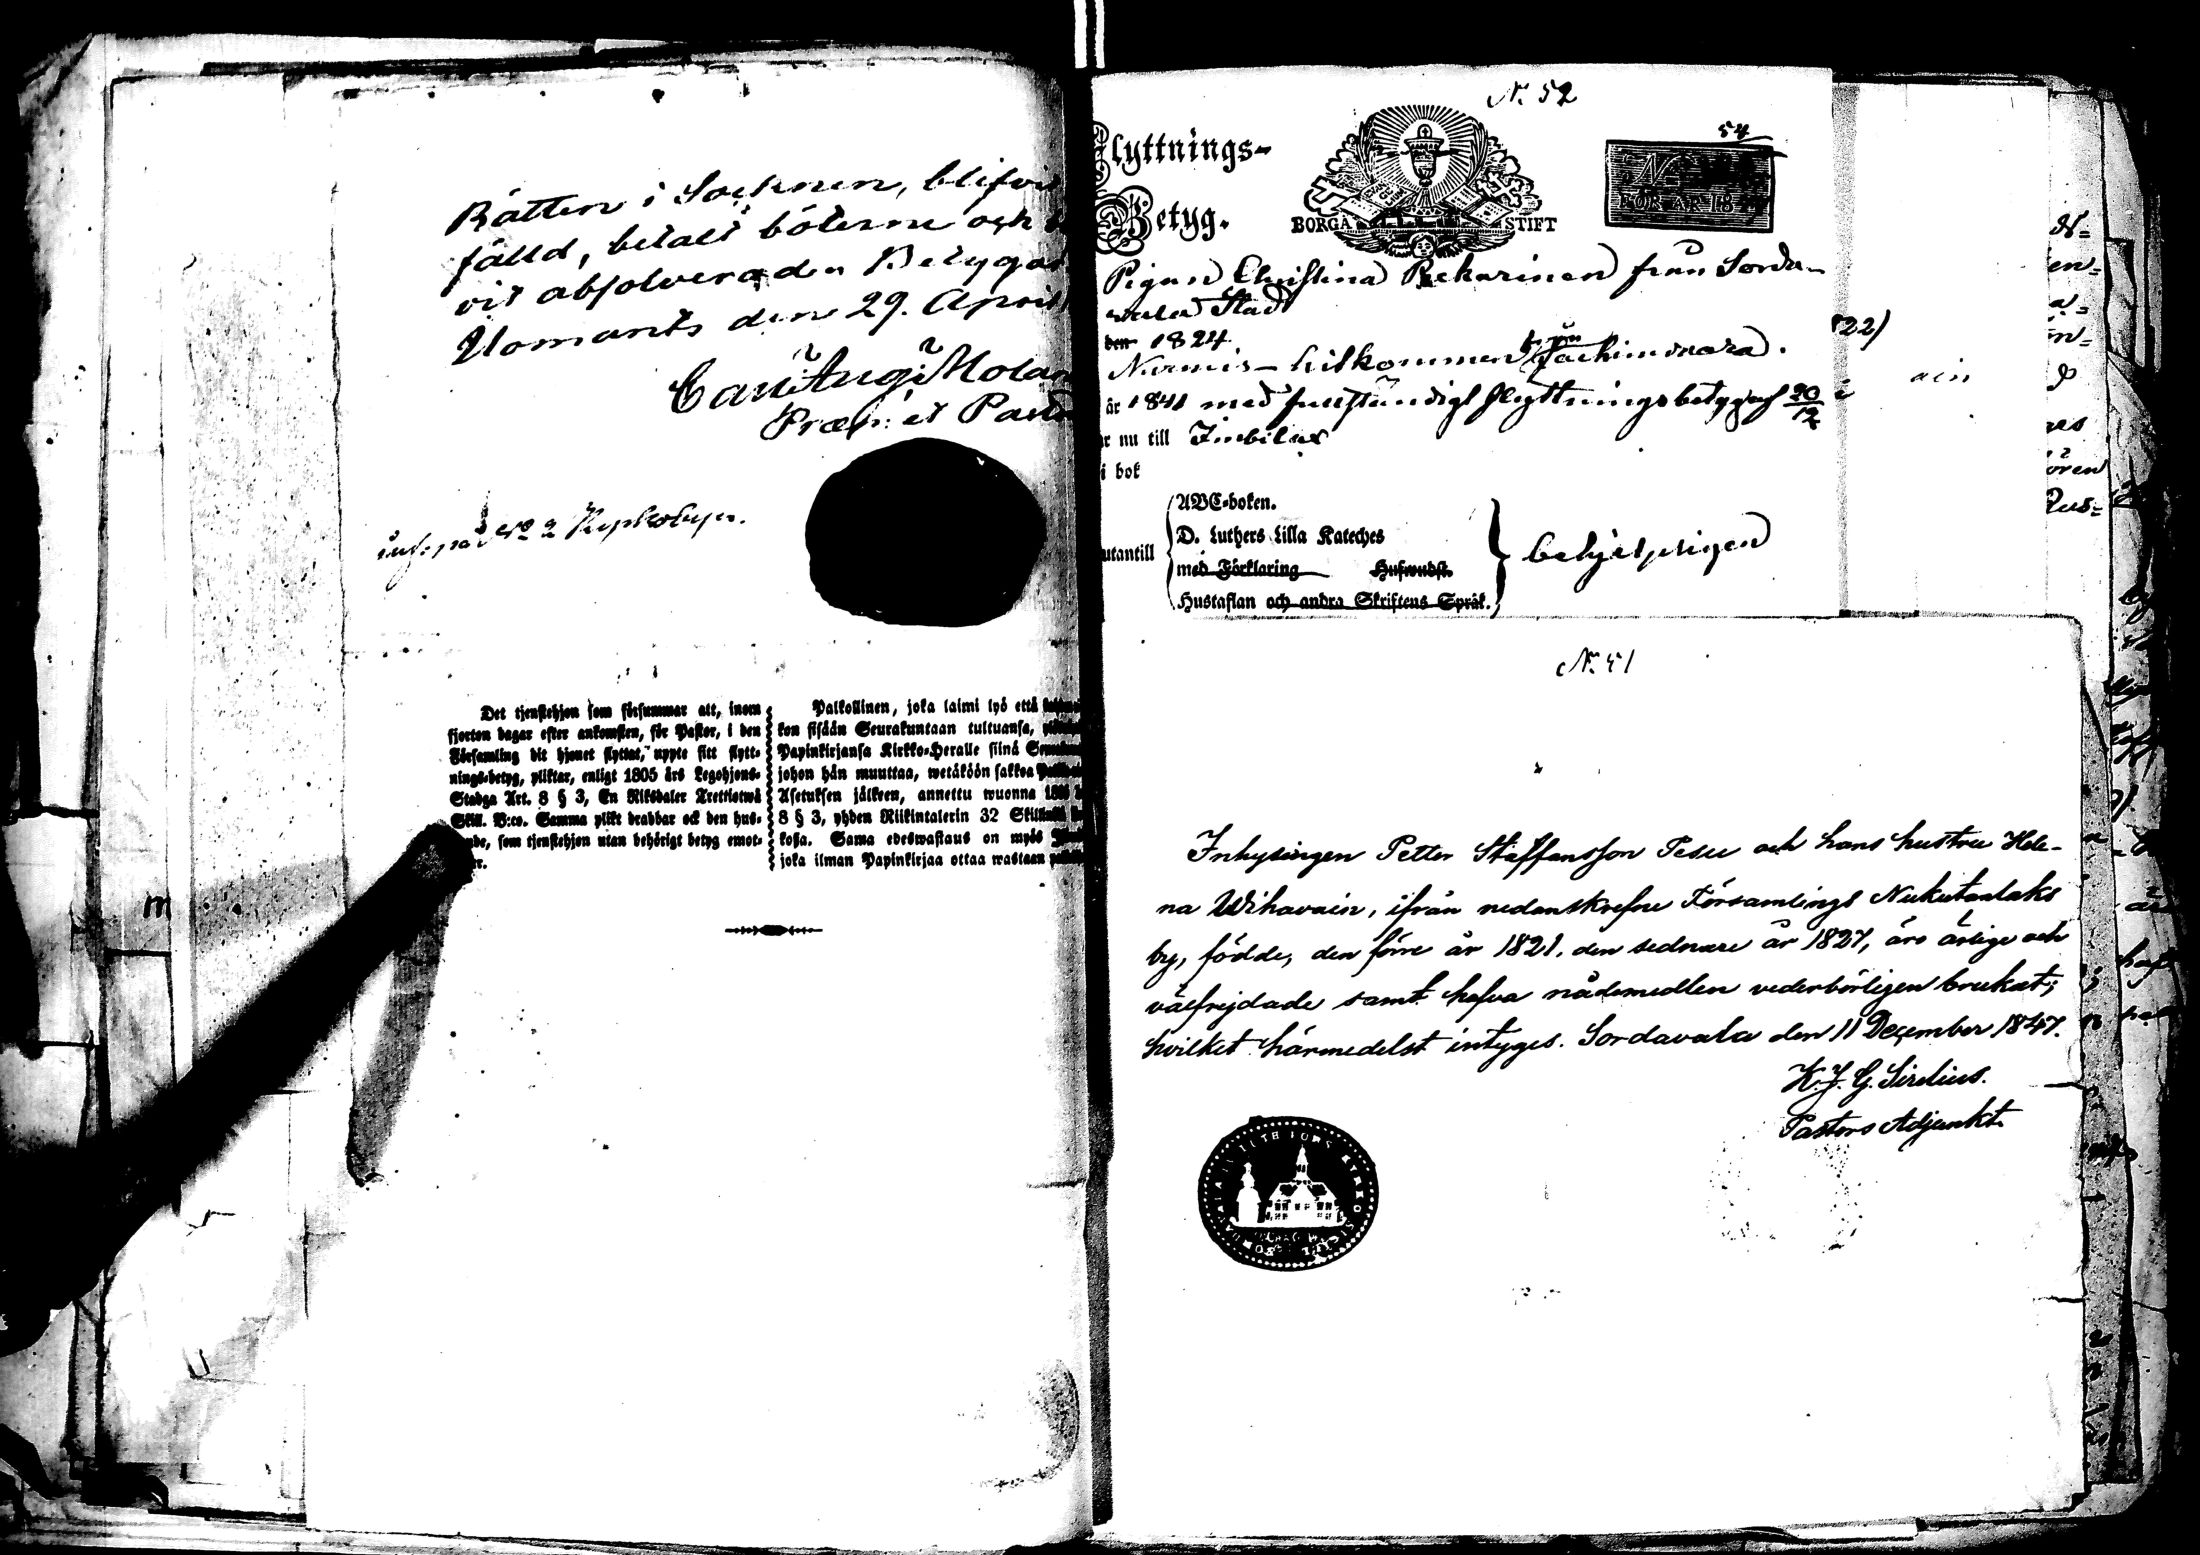 Rätten i Socknen, blifvit
fälld, betalt böterne och
vit absolverad. Betygar
Ilomants den 29. April
Carl Aug: Molan
Præp: et Past
No 2 Kyrkobyn.
Det tjenstehjon som försummar att, inom
fjorton dagar efter ankomsten, för Pastor, i den
Församling dit hjonet flyttat, uppte sitt flytt-
nings-betyg, pliktar, enligt 1805 års Legohjons-
Stadga Art. 8 § 3, En Riksdaler Trettiotwå
Skill. B:co. Samma plikt drabbar ock den hus-
som tjenstehjon utan behörigt betyg emot-
Palkollinen, joka laimi lyö että
kon sisään Seurakuntaan tultuansa,
Papinkirjansa Kirkko-Heralle siinä
johon hän muuttaa, wetäköön sakkoa
Asetuksen jälkeen, annettu wuonna
8 § 3, yhden Riikintalerin 32
Sama edeswastaus on myös
joka ilman Papinkirjaa ottaa wastaan
N. 52
54
Flyttnings-
Betyg.
BORGÅ STIFT
N
FÖR ÅR 18
Pigan Christina Rekarinen från Sorda-
wala Stad
den 1824
Nurmis- hitkommen från Jackimwara.
år 1841 med fullständigt flyttningsbetyg af 20/12 i
nu till Imbilax
i bok
ABC-boken.
D. Luthers Lilla Kateches
utantill
med Förklaring Huswudst.
Hustaflan och andra Skriftens Språk.
behjelpligen
22)
ain
N. 51
Inhysingen Petter Staffansson Pesu och hans hustru Hele-
na Wihavain, ifrån nedanskrefne Församlings Nukutanlaks
by, födde, den förre år 1821. den sednare år 1827, äro ärlige och
välfrejdade samt hafva nådemedlen vederbörligen brukat;
hvilket härmedelst intyges. Sordavala den 11 December 1847.
K. J. G. Sirelius.
Pastors Adjunkt.